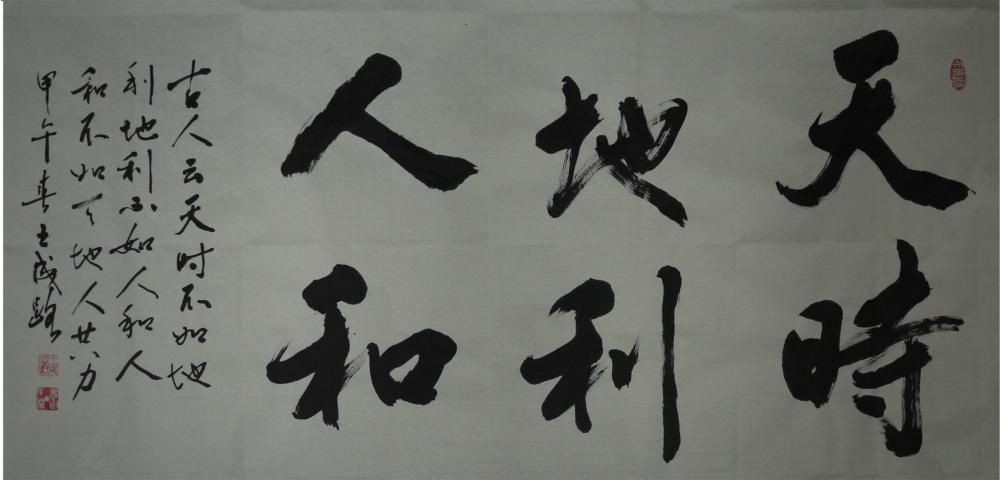 天時
地利
人和
古人云天时不如地
利地利不如人和人
和不如天地人共力
甲午春